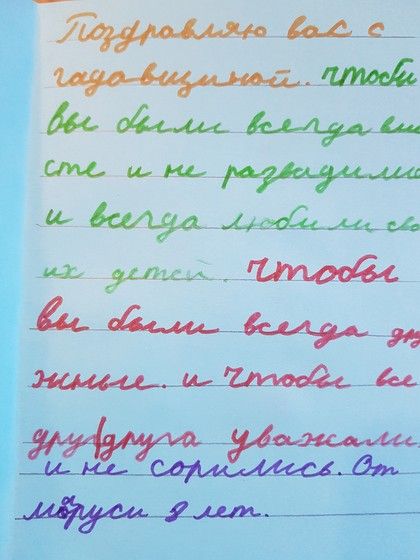 Поздравляю вас с
гадавщиной. чтобы
вы были всегда вми
сте и не развадилис
и всегда любили сво
их детей. чтобы
вы были всегда дру
жные. и чтобы все
друг друга уважали
и не сорились. От
маруси 8 лет.